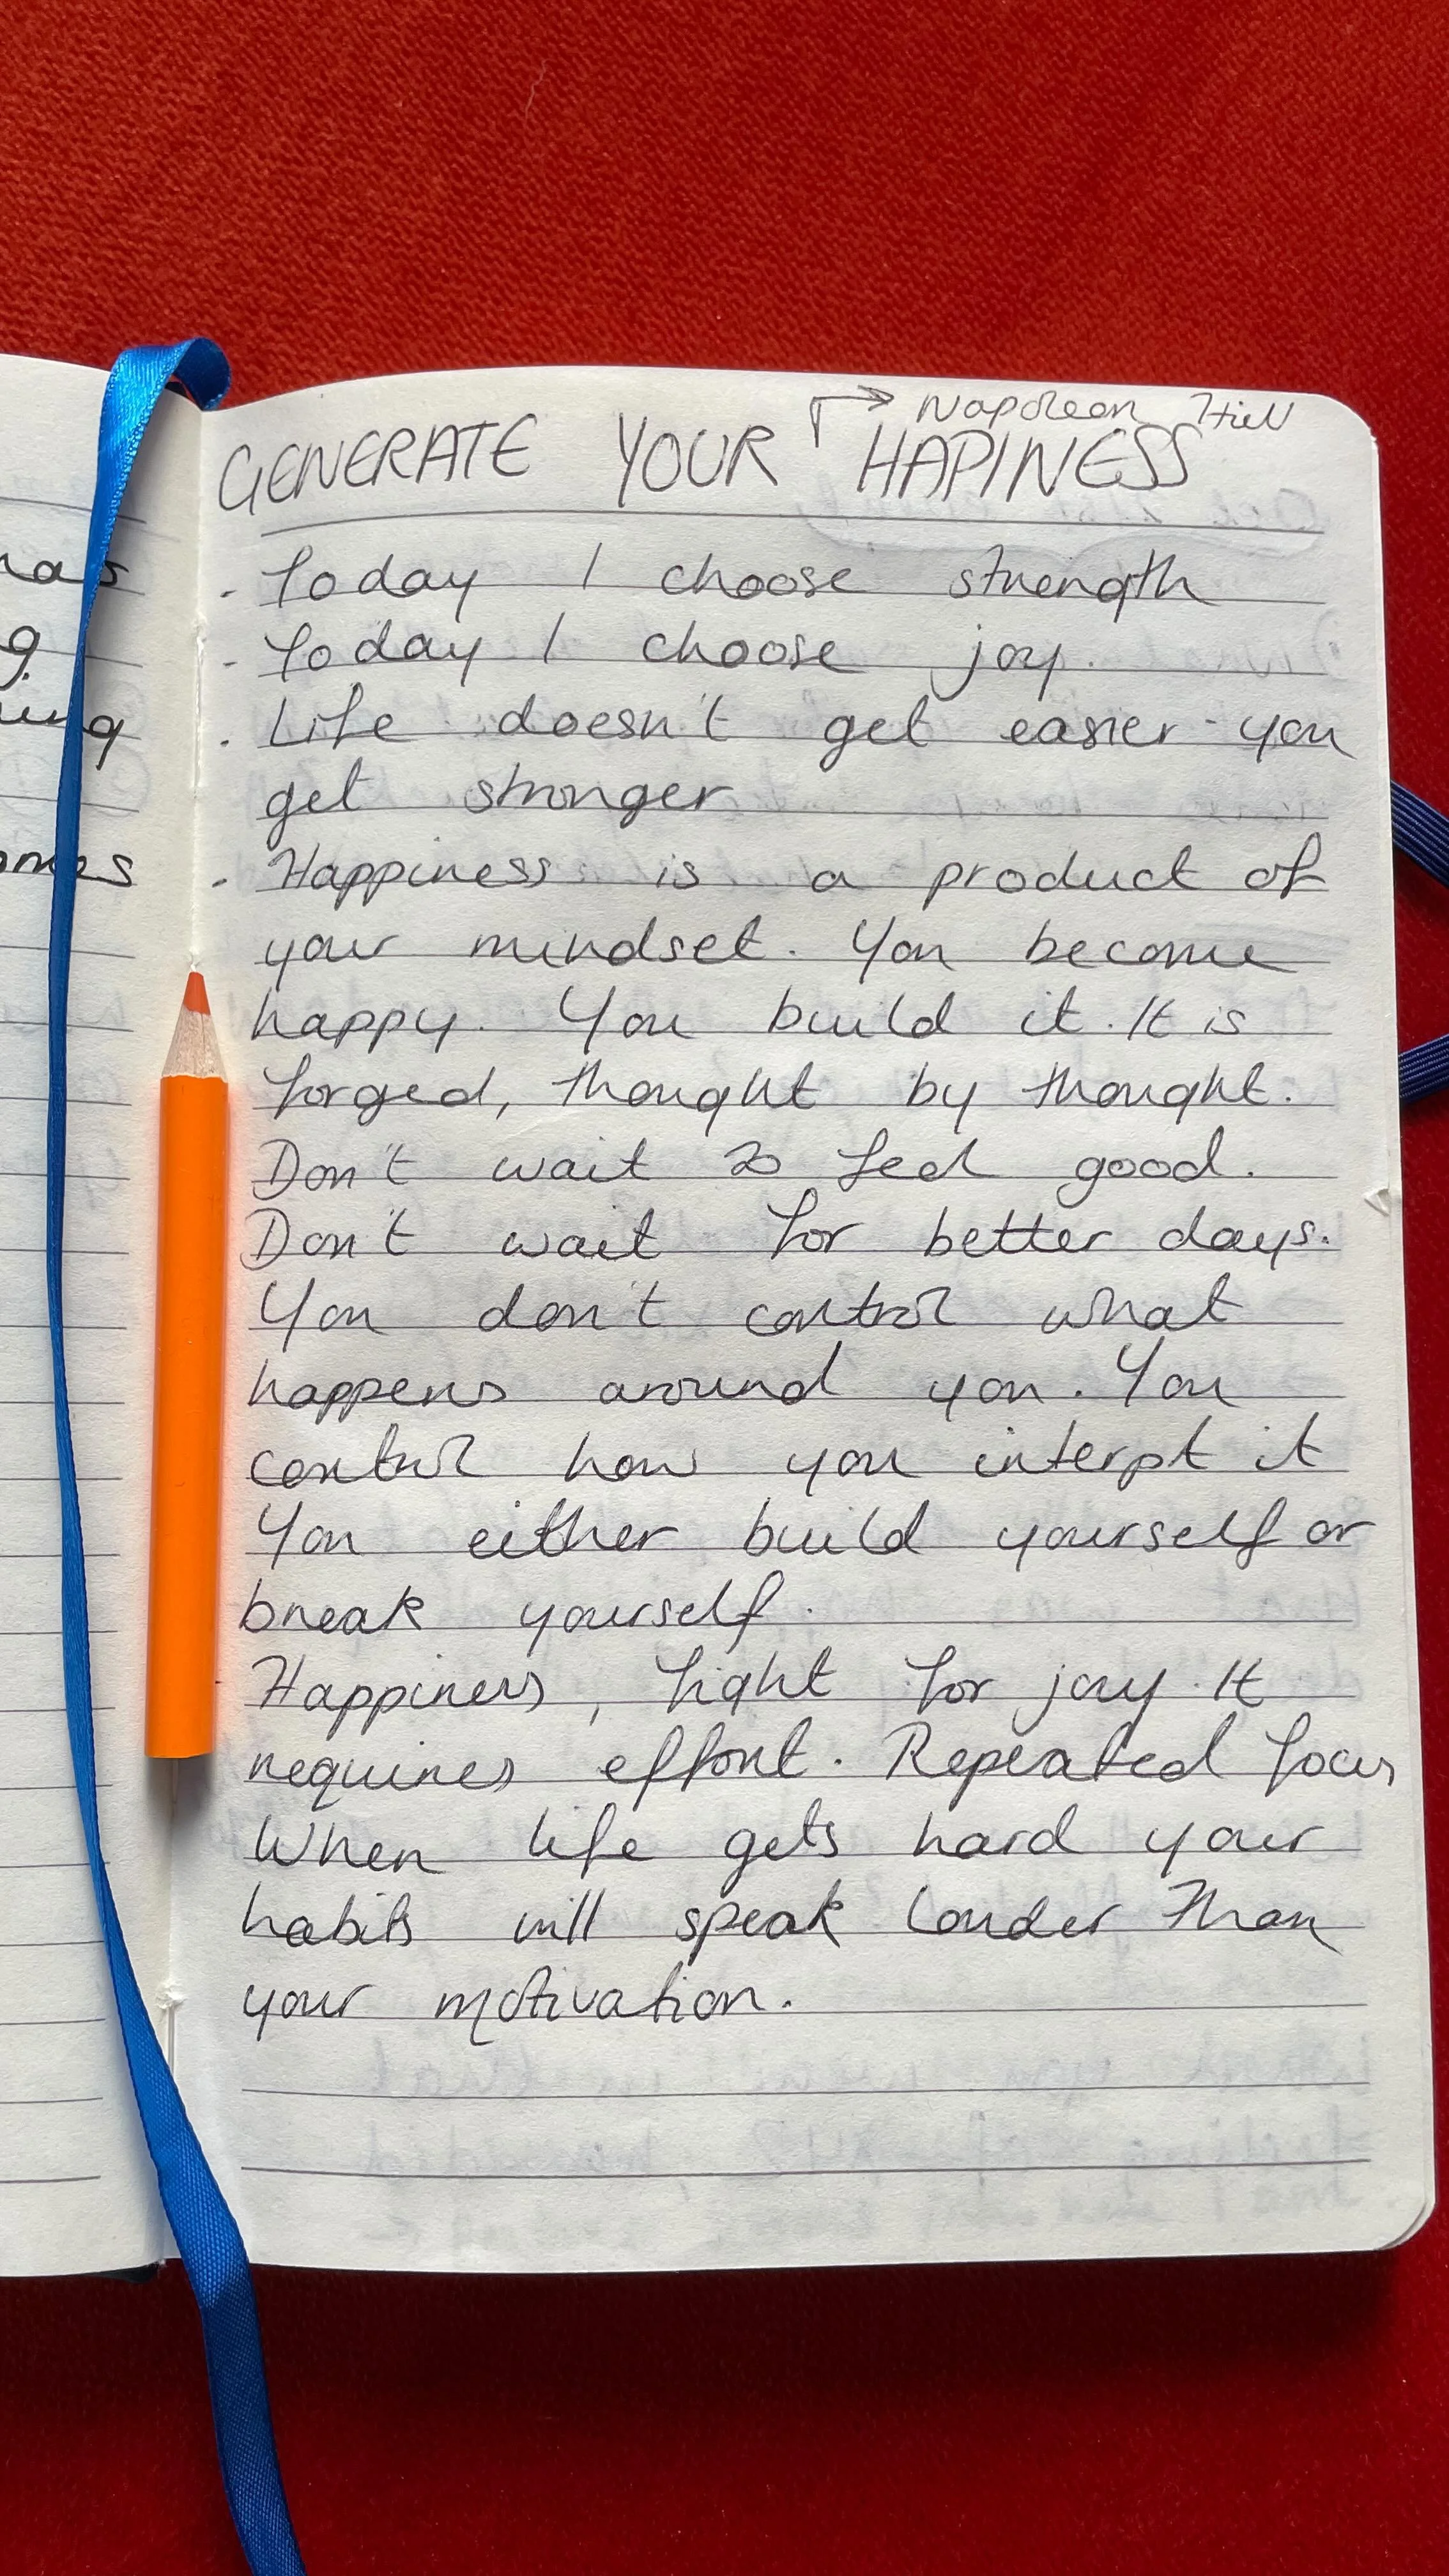 Napoleon Hill
GENERATE YOUR HAPINESS
- Today I choose strength
- Today I choose joy.
- Life doesn't get easier - you
get stronger
- Happiness is a product of
your mindset. You become
happy. You build it. It is
forged, thought by thought.
Don't wait to feel good.
Don't wait for better days.
You don't control what
happens around you. You
control how you interpt it
You either build yourself or
break yourself.
- Happiness, fight for joy. It
requires effort. Repeated focus
When life gets hard your
habits will speak louder than
your motivation.